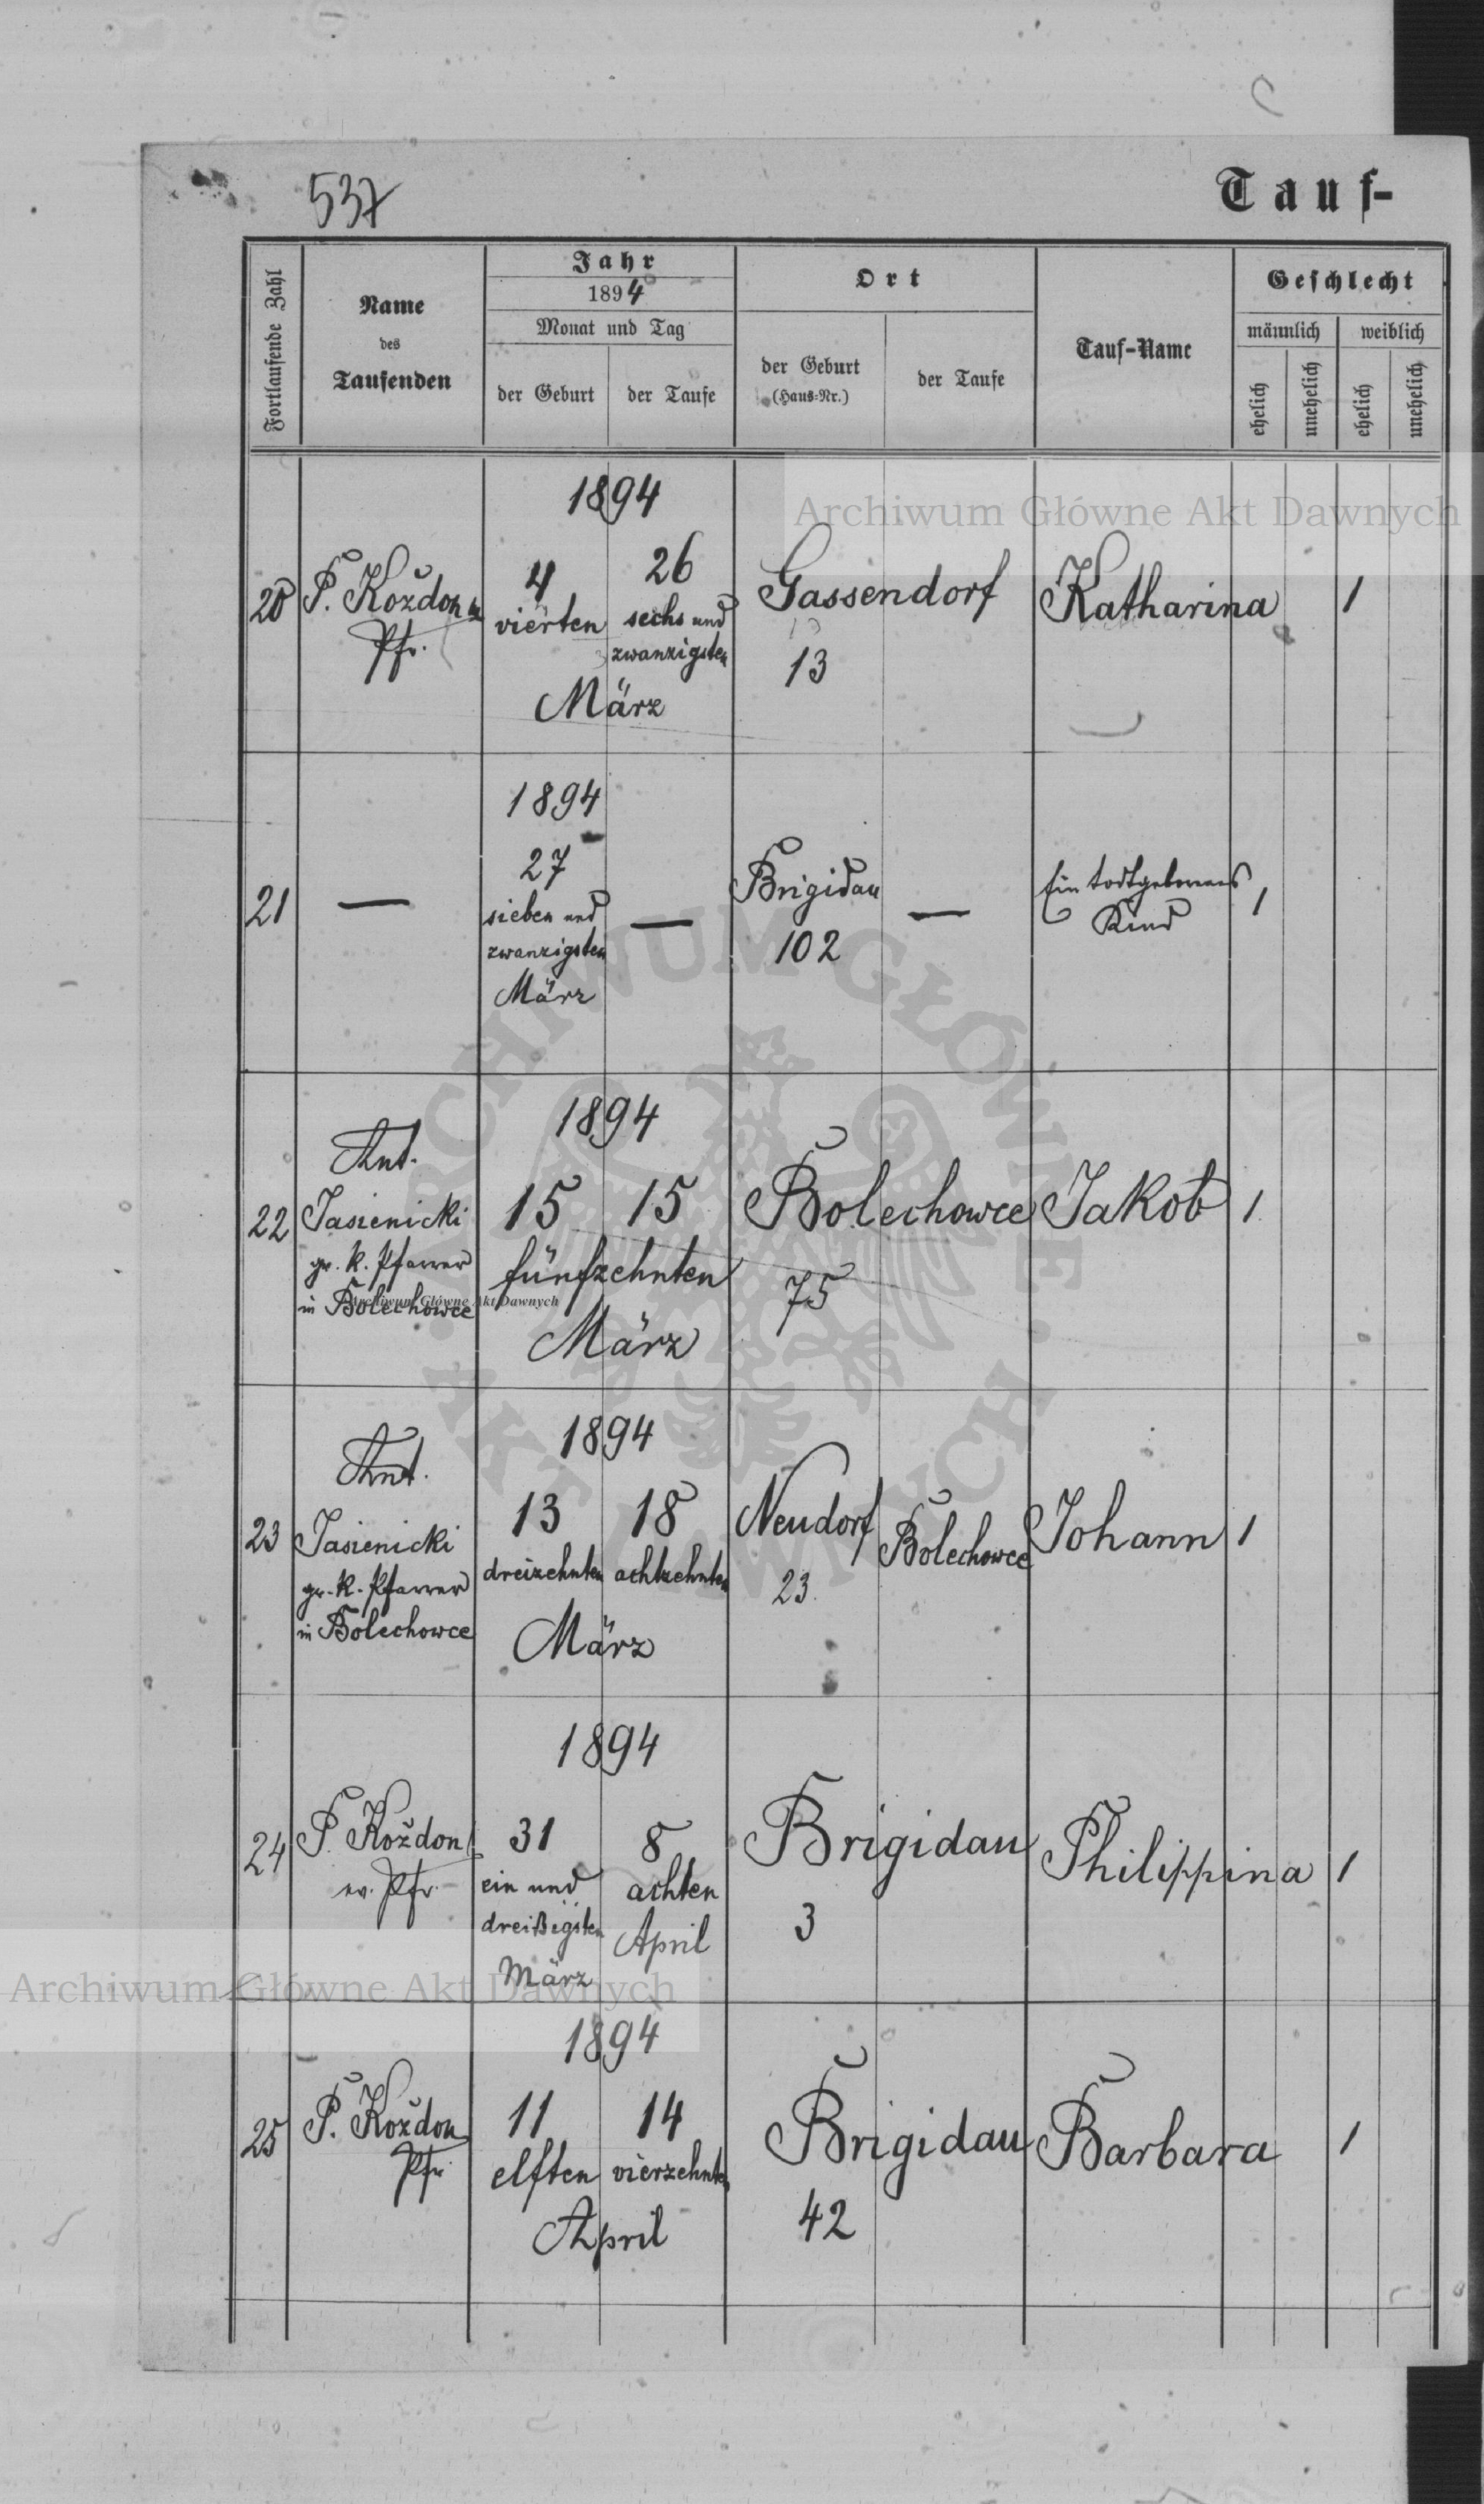 537
Tauf-
Fortlaufende Zahl
Name
des
Taufenden
Jahr
1894
Monat und Tag
der Geburt
der Taufe
Ort
der Geburt
(Haus-Nr.)
der Taufe
Tauf-Name
Geschlecht
männlich
weiblich
ehelich
unehelich
ehelich
unehelich
Archiwum Główne Akt Dawnych
1894
20
P. Koždon
Pfr.
4
vierten
26
sechs und
zwanzigsten
März
Gassendorf
13
Katharina
1
1894
21
—
27
sieben und
zwanzigsten
März
—
Brigidau
102
—
Ein todtgeborenes
Kind
1
ARCHIWUM GŁÓWNE AKT DAWNYCH
1894
22
Ant.
Jasienicki
gr. k. Pfarrer
in Bolechowce
Archiwum Główne Akt Dawnych
15
15
fünfzehnten
März
Bolechowce
75
Jakob
1
1894
23
Ant.
Jasienicki
gr. k. Pfarrer
in Bolechowce
13
dreizehnten
18
achtzehnten
März
Neudorf
23.
Bolechowce
Johann
1
1894
24
P. Koždon
ev. Pfr.
31
ein und
dreißigsten
März
8
achten
April
Brigidau
3
Philippina
1
Archiwum Główne Akt Dawnych
1894
25
P. Koždon
Pfr.
11
elften
14
vierzehnten
April
Brigidau
42
Barbara
1